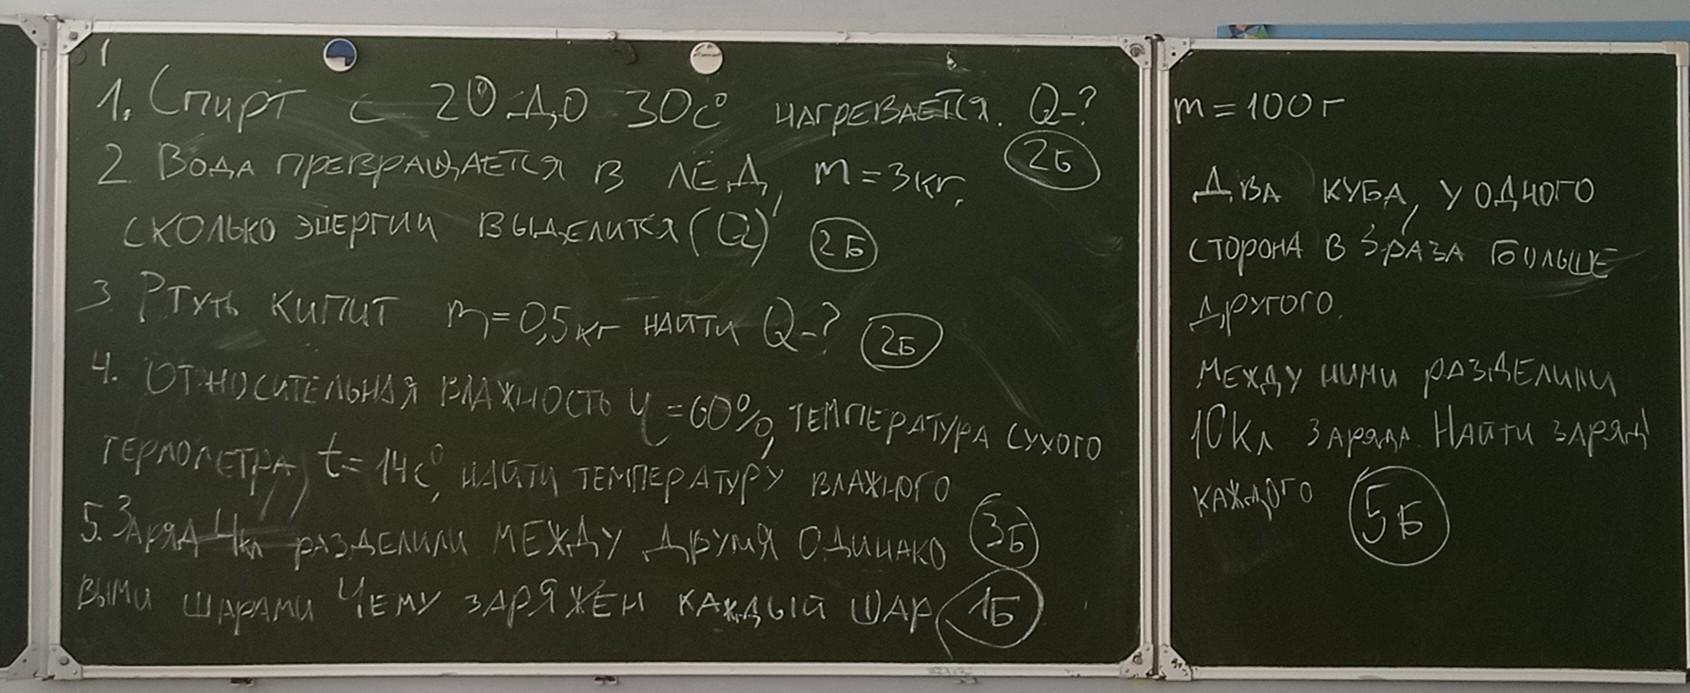 1. Спирт с 20 до 30 с° нагревается. Q-?
2Б
2 Вода превращается в лёд, m = 3кг,
сколько энергии выделится (Q)
2Б
3 Ртуть кипит m = 0,5кг найти Q-?
2Б
4. Относительная влажность φ = 60%, температура сухого
термометра t = 14с°, найти температуру влажного
3Б
5. Заряд 4кл разделили между двумя одинако
выми шарами Чему заряжен каждый шар
1Б
m = 100 г
Два куба, у одного
сторона в 3 раза больше
другого.
Между ними разделили
10 Кл заряда. Найти заряд
каждого
5Б